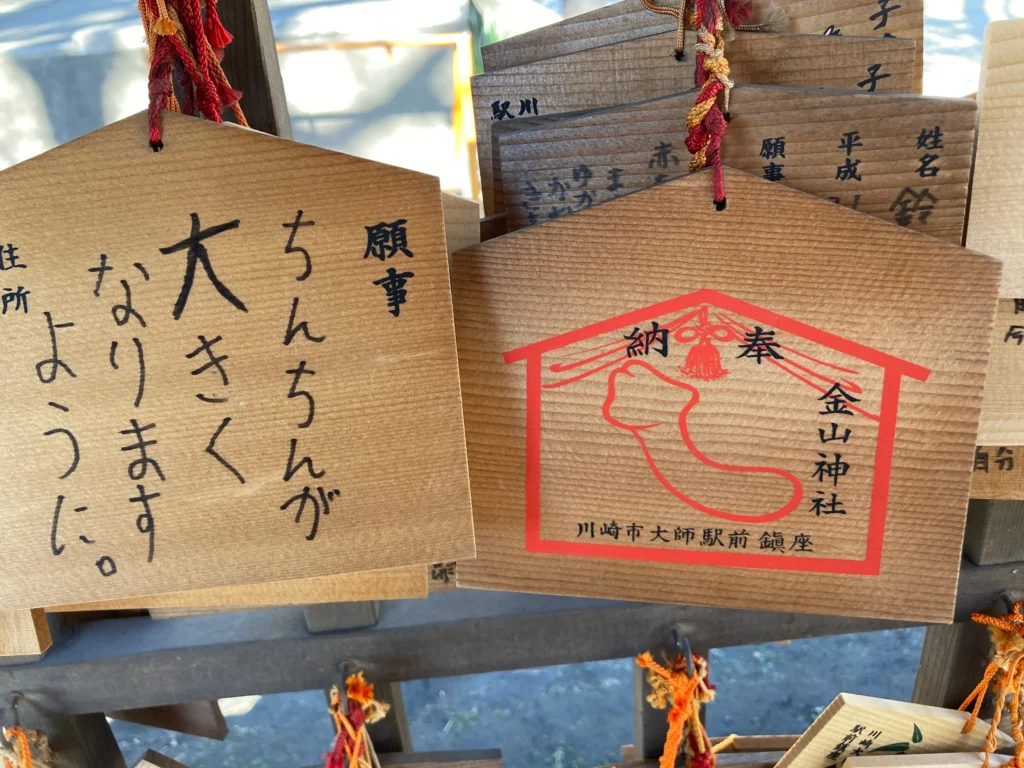 願事
ちんちんが
大きく
なります
ように。
住所
奉納
金山神社
川崎市大師駅前鎮座
姓名
鈴
平成
願事
駅川
子
子
自分